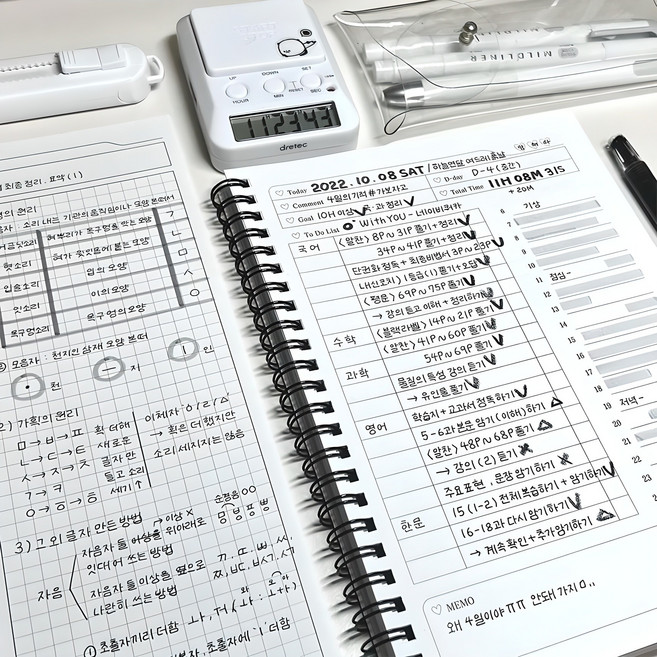 UP
DOWN
SET
HOUR
MIN
RESET
SEC
112343
dretec
MILDLINER
최종 정리, 요약 (1)
ㄱ
혀뿌리가 목구멍을 막은 모양
혓소리
혀가 윗잇몸에 붙는 모양
ㄴ
입술소리
입의 모양
ㅁ
잇소리
이의 모양
ㅅ
목구멍소리
목구멍의 모양
ㅇ
모음자 : 천지인 삼재 모양 본떠
· 천
ㅡ 지
ㅣ 인
2) 가획의 원리
ㅁ→ㅂ→ㅍ
ㄴ→ㄷ→ㅌ
ㅅ→ㅈ→ㅊ
ㄱ→ㅋ
ㅇ→ㆆ→ㅎ
획 더해
새로운
글자 만
들고 소리
세기↑
→ 획은 더했지만
소리 세지지는 않음
3) 그 외 글자 만든 방법
→이상 X
자음
자음자 둘 이상을 위아래로
잇대어 쓰는 방법
순경음 ㅇㅇ
자음자 둘 이상을 옆으로
나란히 쓰는 방법
① 초출자끼리 더함
Today 2022.10.08 SAT
Comment 4월의기적#가보자고
D-day D-4 (중간)
Goal 10H 이상 정리
Total Time 11H 08M 31S
+ 20M
To Do List With YOU - 네이버카페
국어
<알찬> 8P~31P 풀기+정리
34P~41P 풀기+정리
단권화 정독 + 최종비법서 3P~23P
내신코치 1등급(1) 풀기+오답
<평문> 69P~75P 풀기
→ 강의 듣고 이해+정리하기
수학
<블랙라벨> 14P~21P 풀기
<알찬> 41P~60P 풀기
54P~69P 풀기
과학
물질의 특성 강의 듣기
→ 유인물 풀기
학습지+교과서 정독하기
영어
5-6과 본문 암기(이해)하기
<알찬> 48P~68P 풀기
→ 강의(2) 듣기
주요표현, 문장 암기하기
15(1-2) 전체 복습하기 + 암기하기
한문
16-18과 다시 암기하기
→ 계속확인+추가암기하기
6 기상
7
8
9
10
11
점심~
12
13
14
15
16
17
18
19 저녁~
20
21
22
MEMO
왜 4일이야 ㅠㅠ 안돼 가지마..